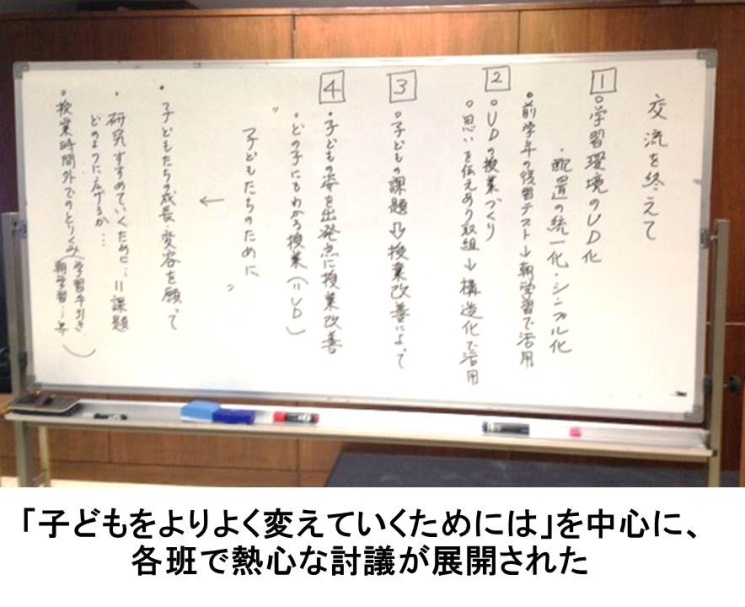 交流を終えて
1
○学習環境のUD化
・配置の統一化・シンプル化
○前学年の復習テスト→朝学習で活用
2
○UDの授業づくり
○思いを伝えあう取組→構造化で活用
3
○子どもの課題⇨授業改善によって
4
・子どもの姿を出発点に授業改善
・どの子にもわかる授業(=UD)
"子どもたちのために"
←
・子どもたちの成長・変容を願って
・研究すすめていくために…=課題
どのように広げるか…
○授業時間外でのとりくみ(学習手引き
朝学習…等)
「子どもをよりよく変えていくためには」を中心に、
各班で熱心な討議が展開された